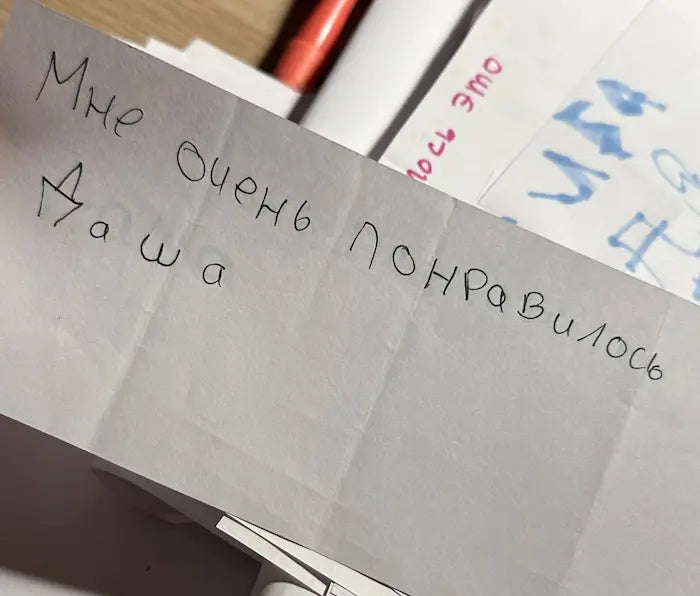 Мне очень понравилось
Даша
лось это